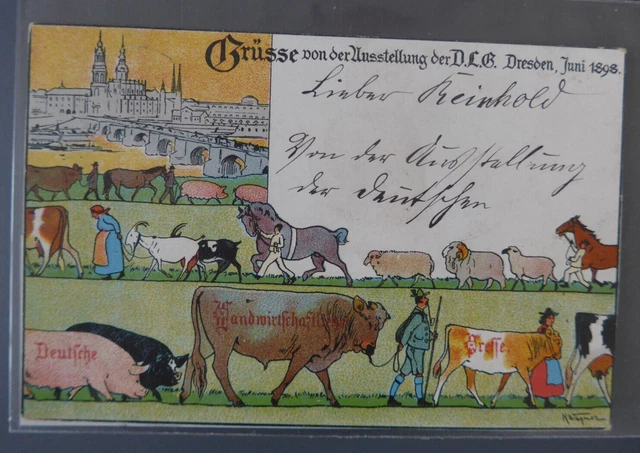 Grüsse von der Ausstellung der D.L.G. Dresden, Juni 1898.
Lieber Reinhold
Von der Ausstellung
der deutschen
Deutsche
Presse.